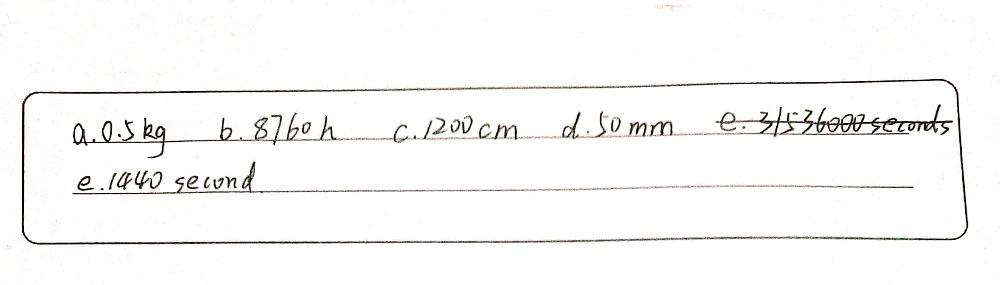 a. 0.5 kg b. 8760 h c. 1200 cm d. 50 mm e. 31536000 seconds
e. 1440 second